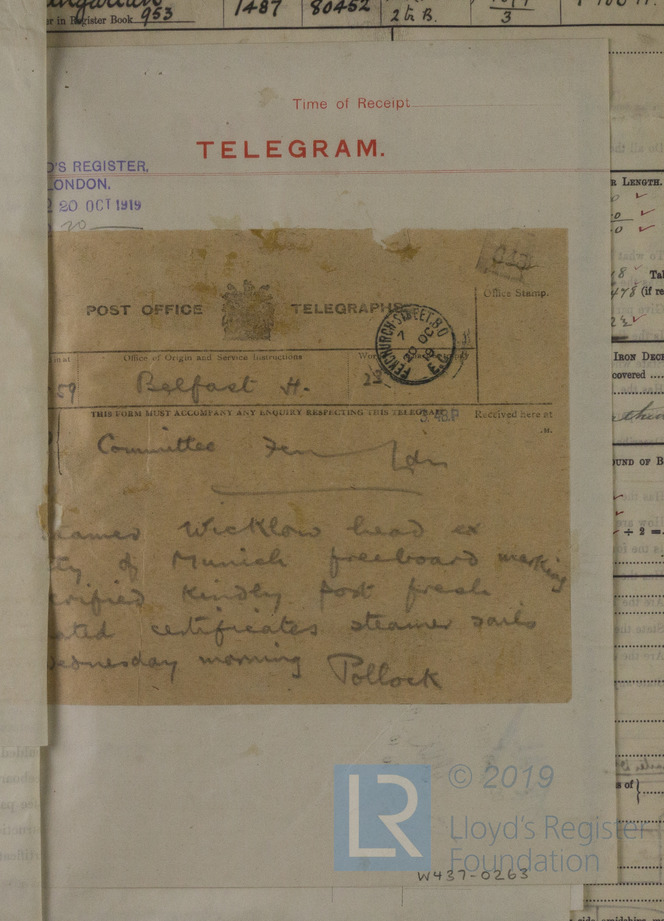 in Register Book 953
1487
80452
2 tr B.
3
Time of Receipt
TELEGRAM.
D'S REGISTER,
LONDON.
20 OCT 1919
20
POST OFFICE TELEGRAPHS.
Office Stamp.
FENCHURCH STREET.B.O
7
20 OC
19
E.C
Office of Origin and Service Instructions
59
Belfast H.
22
THIS FORM MUST ACCOMPANY ANY ENQUIRY RESPECTING THIS TELEGRAM.
Received here at
Committee Fen Ldn
eamer Wicklow head ex
ty of Munich freeboard marking
erified kindly post fresh
ated certificates steamer sails
Wednesday morning Pollock
LENGTH.
IRON DEC
covered
UND OF B
÷ 2 =
LR
© 2019
Lloyd's Register
Foundation
W437-0263